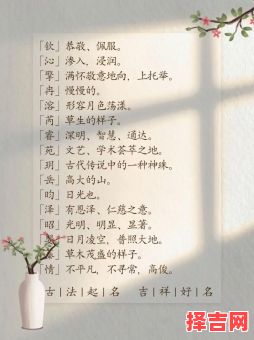 「钦」恭敬、佩服。
「沁」渗入，浸润。
「擎」满怀敬意地向，上托举。
「冉」慢慢的。
「溶」形容月色荡漾。
「芮」草生的样子。
「睿」深明、智慧、通达。
「苑」文艺、学术荟萃之地。
「玥」古代传说中的一种神珠。
「岳」高大的山。
「昀」日光也。
「泽」有恩泽、仁慈之意。
「昭」光明、明显、显著。
日月凌空，普照大地。
草木茂盛的样子。
不平凡，不寻常，高俊。
古｜法｜起｜名 吉｜祥｜好｜名
择吉网